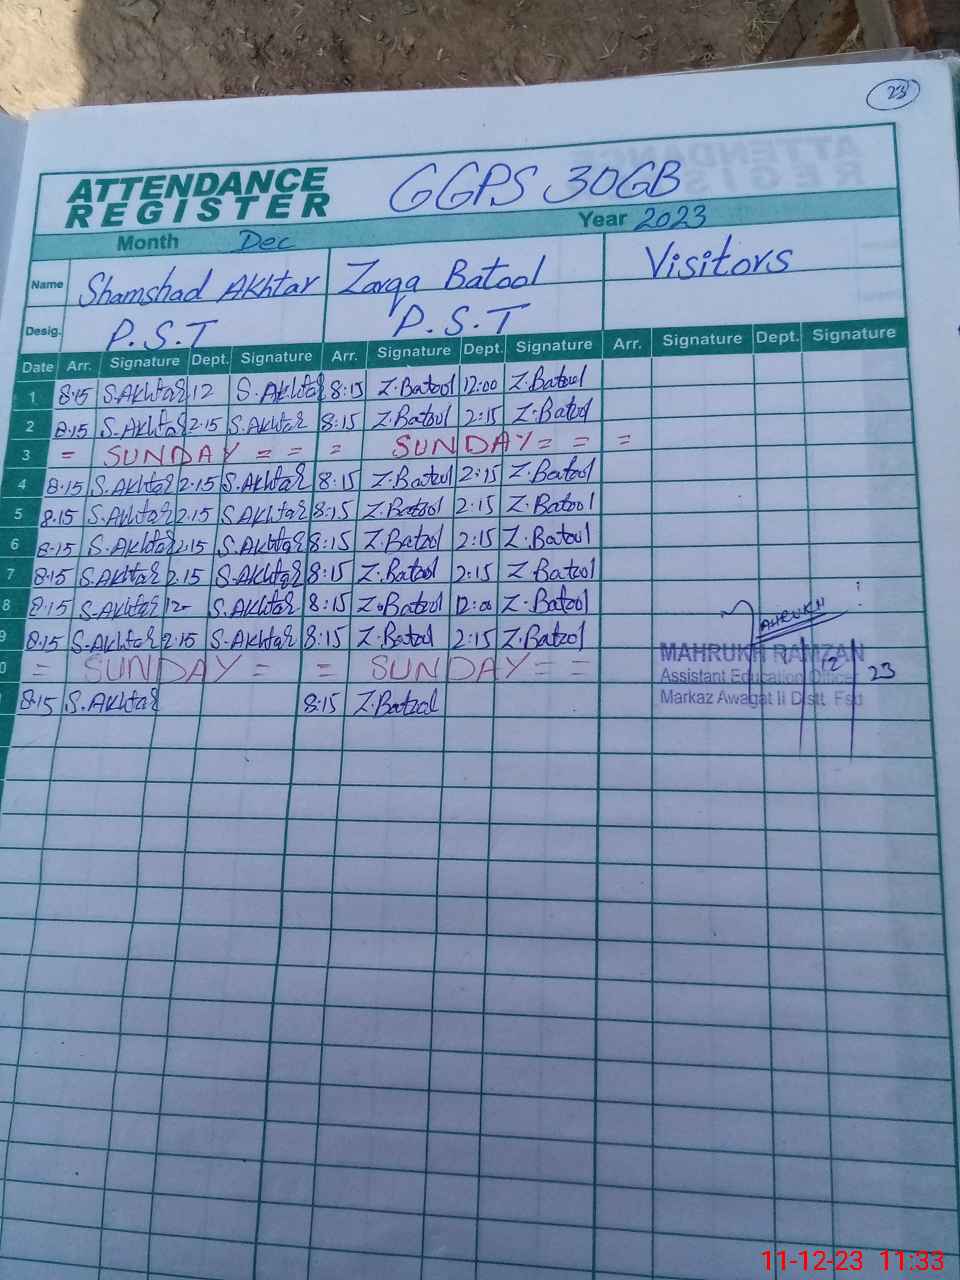 23
ATTENDANCE REGISTER GGPS 30GB
Month Dec Year 2023
Name Shamshad Akhtar Zarqa Batool Visitors
Desig. P.S.T P.S.T
Date Arr. Signature Dept. Signature Arr. Signature Dept. Signature Arr. Signature Dept. Signature
1 8.15 S.Akhtar 12 S.Akhtar 8:15 Z.Batool 12:00 Z.Batool
2 8.15 S.Akhtar 2.15 S.Akhtar 8:15 Z.Batool 2:15 Z.Batool
3 = SUNDAY = = = SUNDAY = = =
4 8.15 S.Akhtar 2.15 S.Akhtar 8:15 Z.Batool 2:15 Z.Batool
5 8.15 S.Akhtar 2.15 S.Akhtar 8:15 Z.Batool 2:15 Z.Batool
6 8.15 S.Akhtar 2.15 S.Akhtar 8:15 Z.Batool 2:15 Z.Batool
7 8.15 S.Akhtar 2.15 S.Akhtar 8:15 Z.Batool 2:15 Z.Batool
8 8.15 S.Akhtar 12- S.Akhtar 8:15 Z.Batool 12:00 Z.Batool
9 8.15 S.Akhtar 2.15 S.Akhtar 8:15 Z.Batool 2:15 Z.Batool
0 = SUNDAY = = SUNDAY = =
8.15 S.Akhtar 8:15 Z.Batool
MAHRUKH
MAHRUKH RAMZAN
Assistant Education Officer
Markaz Awagat II Distt. Fsd
12 23
11-12-23 11:33